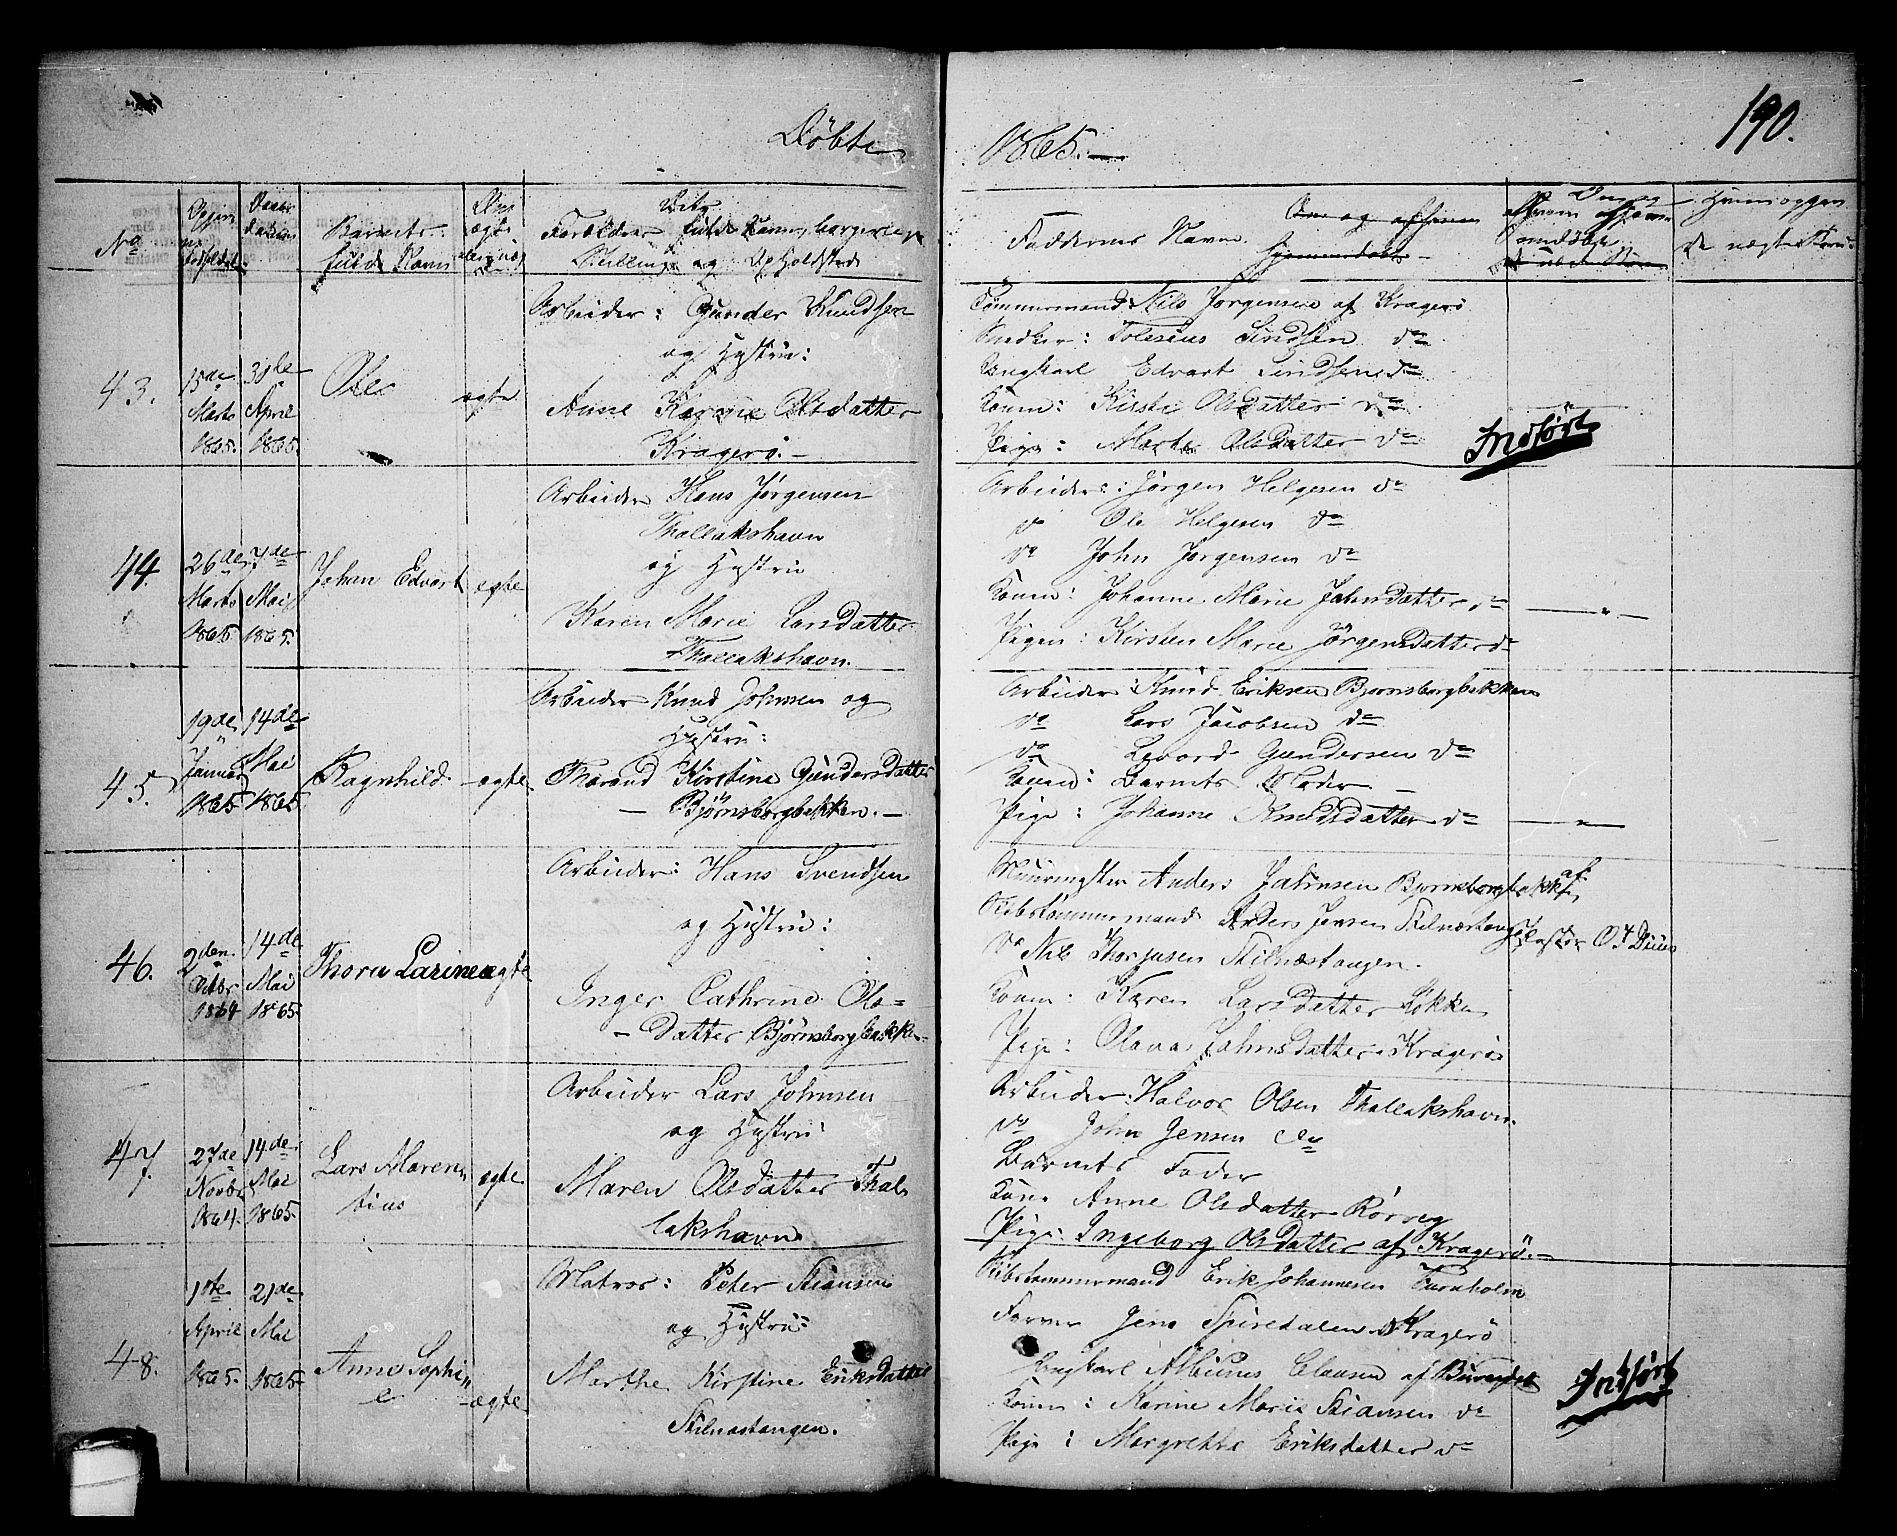 190.
Døbte
1865.
No
Barnets
fulde Navn
Forældres fulde Navn, borgerlige
Stilling og Opholdsted
Faddernes Navn.
43.
15de
Marts
1865.
30te
April
1865.
Ole
ægte
Arbeider: Gunder Knudsen
og Hustru:
Anne Karine Olsdatter
Kragerø.
Tømmermand Nils Jørgensen af Kragerø
Snedker: Tolesius Lindsen do
Ungkarl Edvart Lindsen do
Konen: Kirsti Olsdatter do
Pige: Marte Olsdatter do
Indført
44
26de
Marts
1865
7de
Mai
1865.
Johan Edvart
ægte
Arbeider Hans Jørgensen
Thollakshavn
og Hustru
Karen Marie Larsdatter
Thollakshavn.
Arbeider: Jørgen Helgesen do
do Ole Helgesen do
do John Jørgensen do
Konen: Johanne Marie Johnsdatter do
Pigen: Kirsten Marie Jørgensdatter do
45.
19de
Januar
1865
14de
Mai
1865
Ragnhild
ægte
Arbeider Knud Johnsen og
Hustru:
Tharand Kirstine Gundersdatter
Bjørnsborgbakken.
Arbeider: Knud Eriksen Bjørnsborgbakken
do Lars Jacobsen do
do Levord Gundersen do
Konen: Barnets Moder
Pige: Johanne Knudsdatter do
46.
2den
Octbr
1864
14de
Mai
1865.
Thora Larine
ægte
Arbeider: Hans Svendsen
og Hustru:
Inger Cathrine Ols-
datter Bjørnsborgbakken
Muurmester Anders Johnsen Bjørnsborgbakk
Skibstømmermand Anders Jensen Stilnæstangen
do Nils Thorjusen Stilnæstangen.
Konen: Karen Larsdatter Løkka
Pige: Olava Johnsdatter Kragerø
af
Pastor O. T. Duus
47.
27de
Novbr
1864.
14de
Mai
1865.
Lars Maren
tius
ægte
Arbeider Lars Johnsen
og Hustru:
Maren Olsdatter Thol
lakshavn
Arbeider: Halvor Olsen Thollakshavn.
do John Jensen do
Barnets Fader
Kone Anne Olsdatter Rørvig
Pige: Ingeborg Olsdatter af Kragerø.
48.
1ste
April
1865.
21de
Mai
1865.
Anne Sophi
e
ægte
Matros: Peter Stiansen
og Hustru:
Marthe Kirstine Eriksdatter
Stilnæstangen.
Skibstømmermand Erik Johannesen Furuholm
Farver Jens Spiredalen Kragerø
Ungkarl Albinus Clausen af
Konen: Karine Marie Stiansen do
Pige: Margrethe Eriksdatter do
Indført